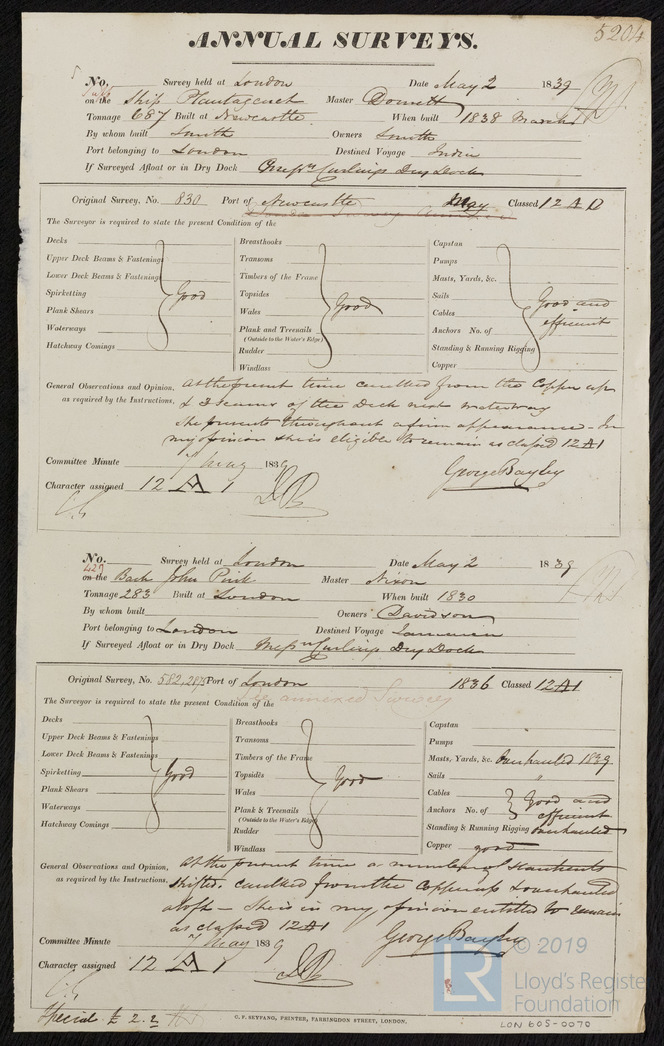 5204
ANNUAL SURVEYS.
No. Survey held at London Date May 2 1839
on the Ship Plantagenet Master Domett
Tonnage 687 Built at Newcastle When built 1838 March
By whom built Smith Owners Smith
Port belonging to London Destined Voyage India
If Surveyed Afloat or in Dry Dock Messrs Curlings Dry Dock
Original Survey, No. 830 Port of Newcastle May Classed 12 A 1
The Surveyor is required to state the present Condition of the
Decks
Upper Deck Beams & Fastenings
Lower Deck Beams & Fastenings
Spirketting Good
Plank Shears
Waterways
Hatchway Comings
Breasthooks
Transoms
Timbers of the Frame
Topsides
Wales Good
Plank and Treenails
(Outside to the Water's Edge)
Rudder
Windlass
Capstan
Pumps
Masts, Yards, &c.
Sails Good and
Cables efficient
Anchors No. of
Standing & Running Rigging
Copper
General Observations and Opinion, At the present time caulked from the Copper up
as required by the Instructions, & 3 seams of the Deck next waterway
She presents throughout a firm appearance - In
my opinion she is eligible to remain as classed 12 A 1
Committee Minute 7 May 1839 George Bayley
Character assigned 12 A 1
No. Survey held at London Date May 2 1839
429
on the Bark John Pirie Master Nixon
Tonnage 283 Built at London When built 1830
By whom built Owners Davidson
Port belonging to London Destined Voyage
If Surveyed Afloat or in Dry Dock Messrs Curlings Dry Dock
Original Survey, No. 582, Port of London 1836 Classed 12 A 1
See annexed Surveys
The Surveyor is required to state the present Condition of the
Decks
Upper Deck Beams & Fastenings
Lower Deck Beams & Fastenings
Spirketting Good
Plank Shears
Waterways
Hatchway Comings
Breasthooks
Transoms
Timbers of the Frame
Topsides Good
Wales
Plank & Treenails
(Outside to the Water's Edge)
Rudder
Windlass
Capstan
Pumps
Masts, Yards, &c. Overhauled 1839
Sails "
Cables Good and
Anchors No. of efficient
Standing & Running Rigging overhauled
Copper good
General Observations and Opinion, At the present time a number of
as required by the Instructions, shifted. caulked from the Copper up & overhauled
aloft - She is in my opinion entitled to remain
as classed 12 A 1
Committee Minute May 1839 George Bayley
Character assigned 12 A 1
Special £ 2.2
C. F. SEYFANG, PRINTER, FARRINGDON STREET, LONDON.
LR © 2019
Lloyd's Register
Foundation
LON 605-0070